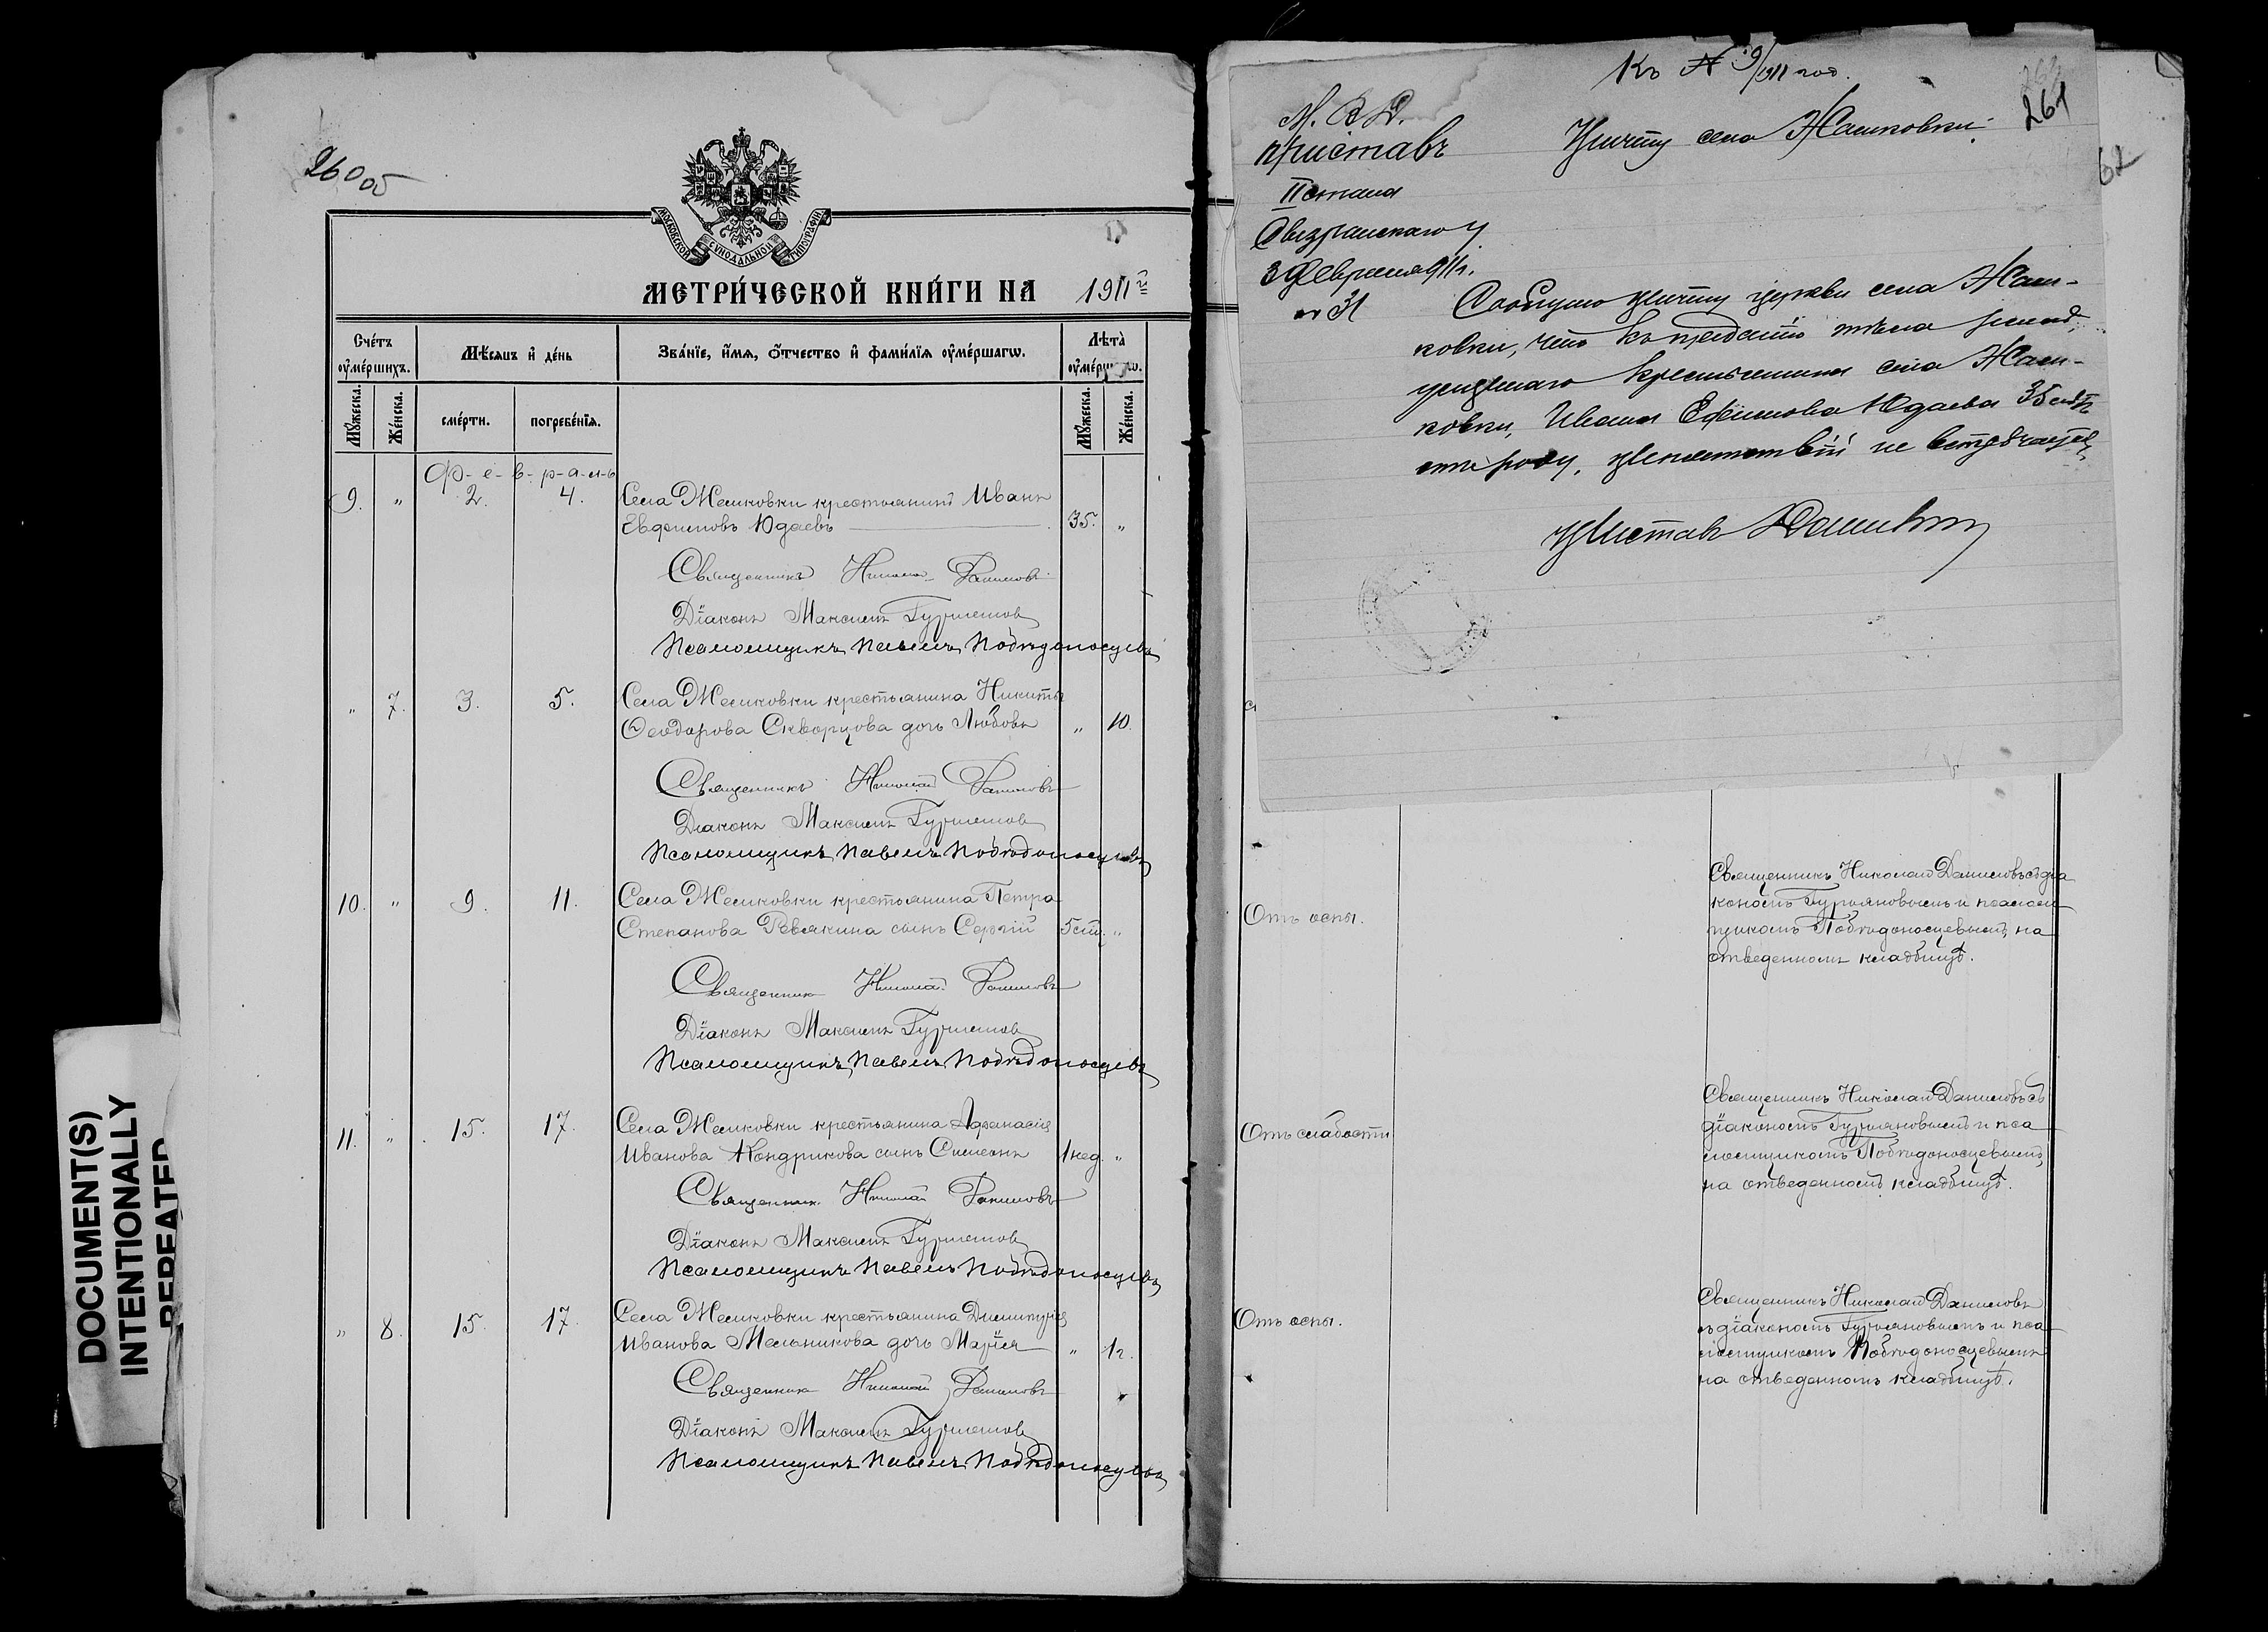 260 об
МОСКОВСКОЙ СѴНОДАЛЬНОЙ ТИПОГРАФІИ
МЕТРИ́ЧЕСКОЙ КНИ́ГИ НА 1911й
Сче́тъ оумершихъ.
Мѣсяцъ и де́нь
Зва́нїе, и́мя, о́тчество и фами́лїя оуме́ршагѡ.
Лѣта̀ оуме́ршагѡ.
Му́жеска.
Же́нска.
сме́рти.
погребе́нїя.
Му́жеска.
Же́нска.
Ф-е-в-р-а-л-ь
9. " 2. 4. Села Жемковки крестьянинъ Иванъ
Евфимовъ Юдаевъ 35. "
Священникъ Николай Даниловъ
Діаконъ Максимъ Гурьяновъ
Псаломщикъ Павелъ Побѣдоносцевъ
" 7. 3. 5. Села Жемковки крестьянина Никиты
Ѳеодорова Скворцова дочь Любовь " 10.
Священникъ Николай Даниловъ
Діаконъ Максимъ Гурьяновъ
Псаломщикъ Павелъ Побѣдоносцевъ
10. " 9. 11. Села Жемковки крестьянина Петра
Степанова Ревякина сынъ Сергій 5 "
Священникъ Николай Даниловъ
Діаконъ Максимъ Гурьяновъ
Псаломщикъ Павелъ Побѣдоносцевъ
11. " 15. 17. Села Жемковки крестьянина Афанасія
Иванова Кондрикова сынъ Симеонъ 1 нед. "
Священникъ Николай Даниловъ
Діаконъ Максимъ Гурьяновъ
Псаломщикъ Павелъ Побѣдоносцевъ
" 8. 15. 17. Села Жемковки крестьянина Димитрія
Иванова Мельникова дочь Марія " 1г.
Священникъ Николай Даниловъ
Діаконъ Максимъ Гурьяновъ
Псаломщикъ Павелъ Побѣдоносцевъ
Къ № 9/1911 год.
261
62
М. В. Д.
приставъ
II стана
Сызранскаго у.
3 Февраля 911г.
№ 31
Причту села Жемковки.
Сообщаю причту церкви села Жем-
ковки, что къ преданію тѣла
крестьянина села Жем-
ковки, Ивана Ефимова Юдаева 35 лѣтъ
препятствій не встрѣчается
Приставъ
Отъ оспы.
Священникъ Николай Даниловъ съ діа
кономъ Гурьяновымъ и псалом
щикомъ Побѣдоносцевымъ, на
отведенномъ кладбищѣ.
Отъ слабости
Священникъ Николай Даниловъ съ
діакономъ Гурьяновымъ и пса
ломщикомъ Побѣдоносцевымъ,
на отведенномъ кладбищѣ.
Отъ оспы.
Священникъ Николай Даниловъ
съ діакономъ Гурьяновымъ и пса
ломщикомъ Побѣдоносцевымъ
на отведенномъ кладбищѣ.
DOCUMENT(S)
INTENTIONALLY
REPEATED